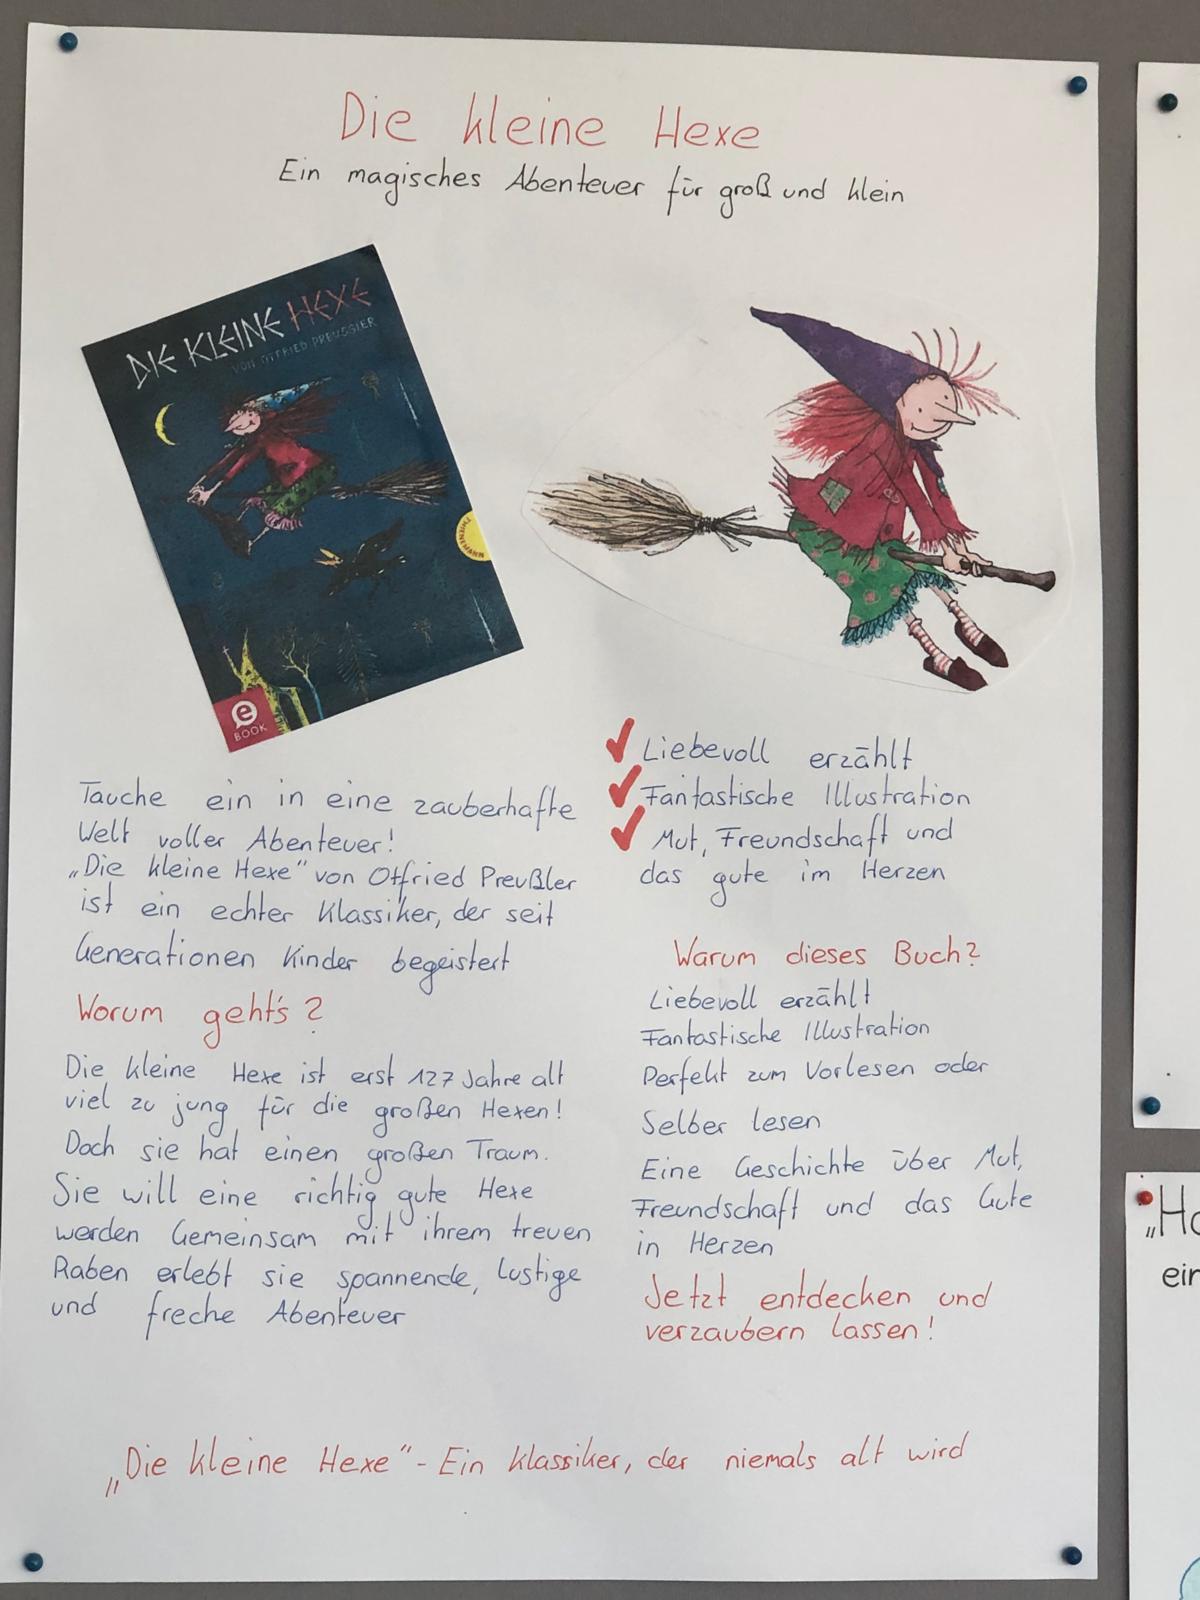 Die kleine Hexe
Ein magisches Abenteuer für groß und klein
DIE KLEINE HEXE
VON OTFRIED PREUSSLER
THIENEMANN
e
BOOK
Tauche ein in eine zauberhafte
Welt voller Abenteuer!
„Die kleine Hexe" von Otfried Preußler
ist ein echter Klassiker, der seit
Generationen Kinder begeistert
Worum geht's?
Die kleine Hexe ist erst 127 Jahre alt
viel zu jung für die großen Hexen!
Doch sie hat einen großen Traum.
Sie will eine richtig gute Hexe
werden Gemeinsam mit ihrem treuen
Raben erlebt sie spannende, lustige
und freche Abenteuer
✓ Liebevoll erzählt
✓ Fantastische Illustration
✓ Mut, Freundschaft und
das gute im Herzen
Warum dieses Buch?
Liebevoll erzählt
Fantastische Illustration
Perfekt zum Vorlesen oder
Selber lesen
Eine Geschichte über Mut,
Freundschaft und das Gute
in Herzen
Jetzt entdecken und
verzaubern lassen!
„Die kleine Hexe" - Ein Klassiker, der niemals alt wird